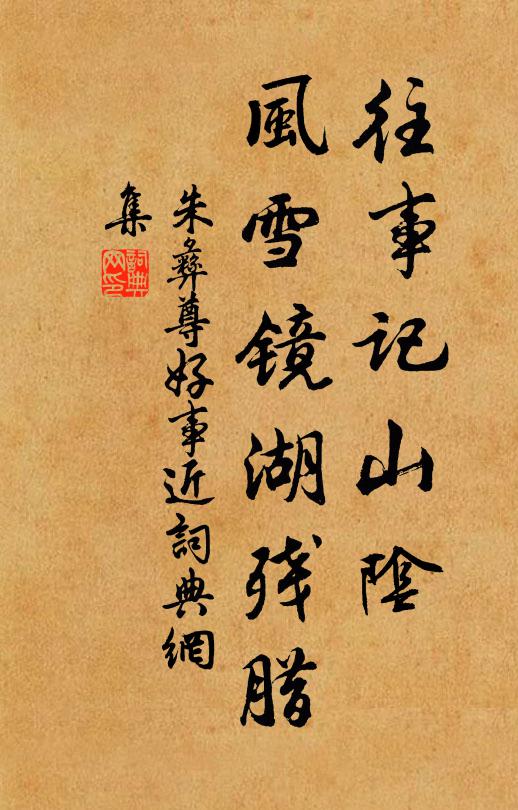 往事记山陰
風雪镜湖残腊
朱彝尊好事近詞典網
集
詞典
网印